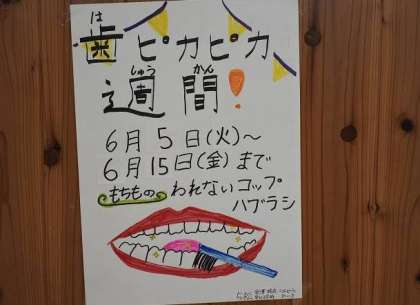 は
歯ピカピカ
しゅうかん
週間!
6月5日(火)〜
6月15日(金)まで
もちもの われないコップ
ハブラシ